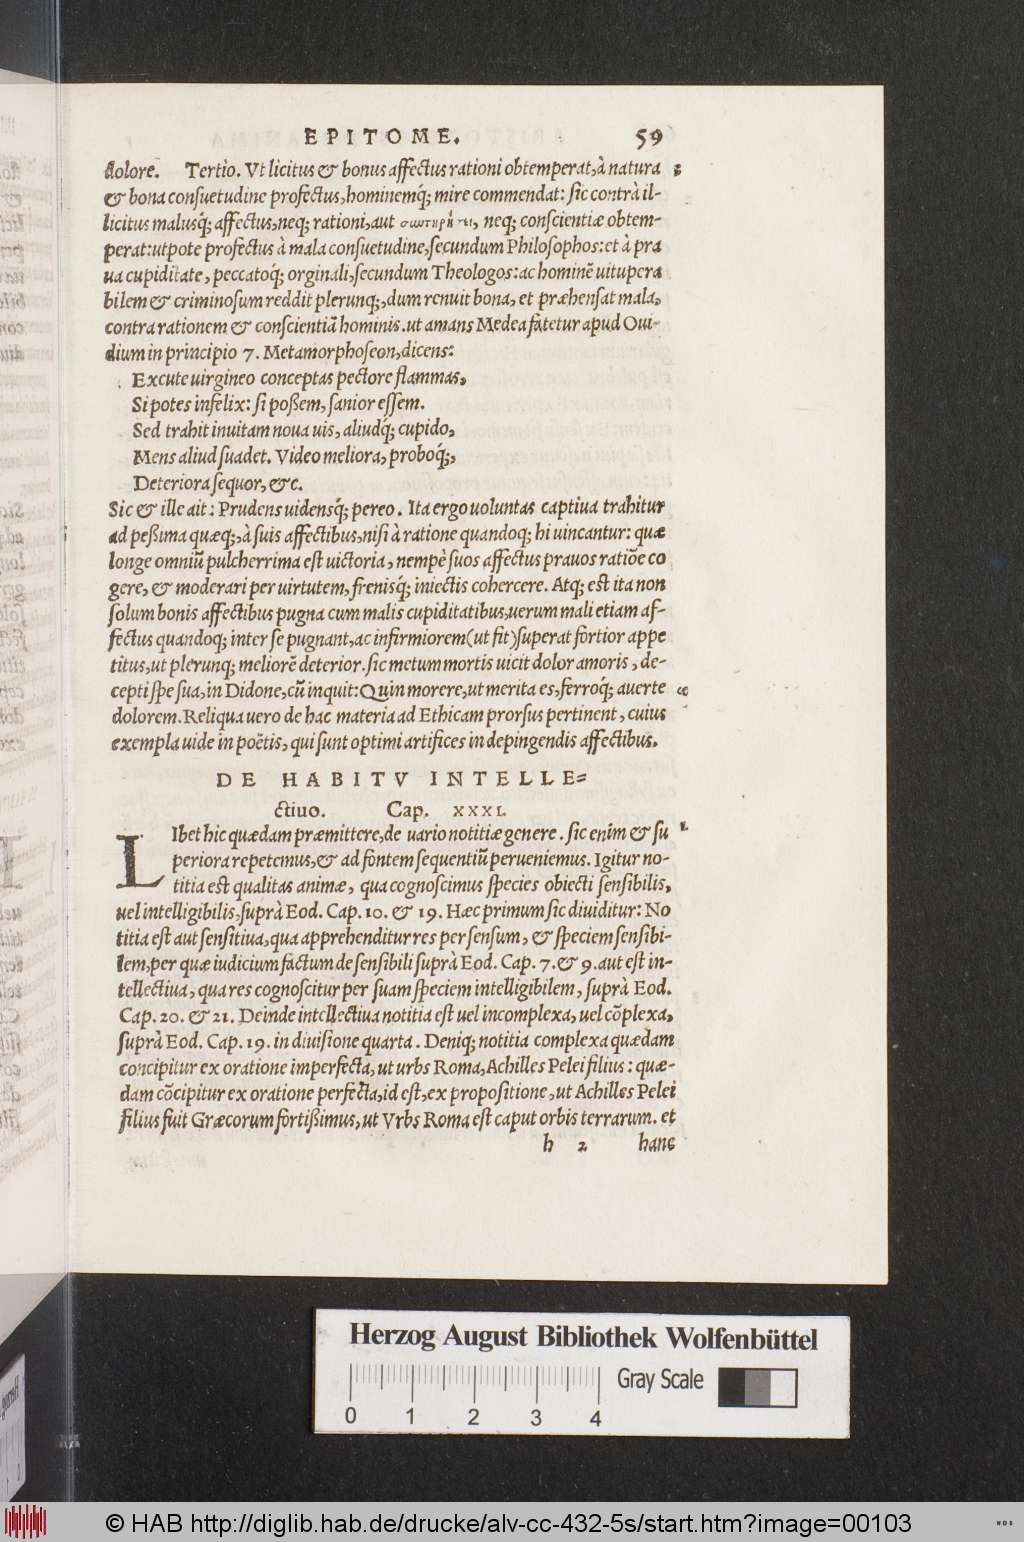 EPITOME. 59
dolore. Tertio. Vt licitus & bonus affectus rationi obtemperat, à natura
& bona consuetudine profectus, hominemq́; mire commendat: sic contrà il-
licitus malusq́; affectus, neq; rationi, aut neq; conscientiæ obtem-
perat: utpote profectus à mala consuetudine, secundum Philosophos: et à pra
ua cupiditate, peccatoq́; orginali, secundum Theologos: ac hominē uitupera
bilem & criminosum reddit plerunq;, dum renuit bona, et præhensat mala,
contra rationem & conscientiā hominis. ut amans Medea fatetur apud Oui-
dium in principio 7. Metamorphoseon, dicens:
Excute uirgineo conceptas pectore flammas,
Si potes infelix: si poßem, sanior essem.
Sed trahit inuitam noua uis, aliudq́; cupido,
Mens aliud suadet. Video meliora, proboq́;,
Deteriora sequor, &c.
Sic & ille ait: Prudens uidensq́; pereo. Ita ergo uoluntas captiua trahitur
ad peßima quæq;, à suis affectibus, nisi à ratione quandoq; hi uincantur: quæ
longe omniū pulcherrima est uictoria, nempè suos affectus prauos ratiōe co
gere, & moderari per uirtutem, frenisq́; iniectis cohercere. Atq; est ita non
solum bonis affectibus pugna cum malis cupiditatibus, uerum mali etiam af-
fectus quandoq; inter se pugnant, ac infirmiorem (ut fit) superat fortior appe
titus, ut plerunq; meliorē deterior. sic metum mortis uicit dolor amoris, de-
cepti spe sua, in Didone, cū inquit: Quin morere, ut merita es, ferroq́; auerte
dolorem. Reliqua uero de hac materia ad Ethicam prorsus pertinent, cuius
exempla uide in poëtis, qui sunt optimi artifices in depingendis affectibus.
DE HABITV INTELLE=
ctiuo. Cap. XXXI.
LIbet hic quædam præmittere, de uario notitiæ genere. sic enim & su
periora repetemus, & ad fontem sequentiū perueniemus. Igitur no-
titia est qualitas animæ, qua cognoscimus species obiecti sensibilis,
uel intelligibilis, suprà Eod. Cap. 10. & 19. Hæc primum sic diuiditur: No
titia est aut sensitiua, qua apprehenditur res per sensum, & speciem sensibi-
lem, per quæ iudicium factum de sensibili suprà Eod. Cap. 7. & 9. aut est in-
tellectiua, qua res cognoscitur per suam speciem intelligibilem, suprà Eod.
Cap. 20. & 21. Deinde intellectiua notitia est uel incomplexa, uel cōplexa,
suprà Eod. Cap. 19. in diuisione quarta. Deniq; notitia complexa quædam
concipitur ex oratione imperfecta, ut urbs Roma, Achilles Pelei filius: quæ-
dam cōcipitur ex oratione perfecta, id est, ex propositione, ut Achilles Pelei
filius fuit Græcorum fortißimus, ut Vrbs Roma est caput orbis terrarum. et
h 2 hanc
Herzog August Bibliothek Wolfenbüttel
Gray Scale
0 1 2 3 4
© HAB http://diglib.hab.de/drucke/alv-cc-432-5s/start.htm?image=00103